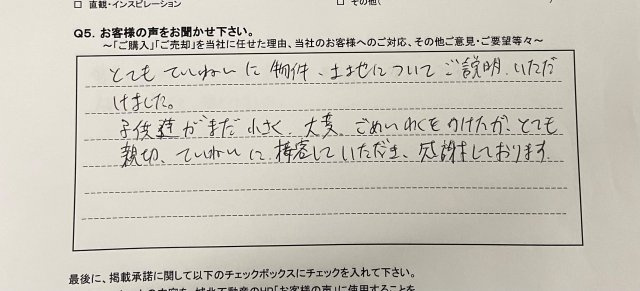 □ 直観・インスピレーション □ その他(
Q5. お客様の声をお聞かせ下さい。
~「ご購入」「ご売却」を当社に任せた理由、当社のお客様へのご対応、その他ご意見・ご要望等々~
とても ていねいに 物件、土地について ご説明 いただ
けました。
子供達が まだ 小さく、大変、ごめいわくを かけたが、とても
親切、ていねいに 接客して いただき、感謝しております
最後に、掲載承諾に関して以下のチェックボックスにチェックを入れて下さい。
城北不動産のHP「お客様の声」に使用することを